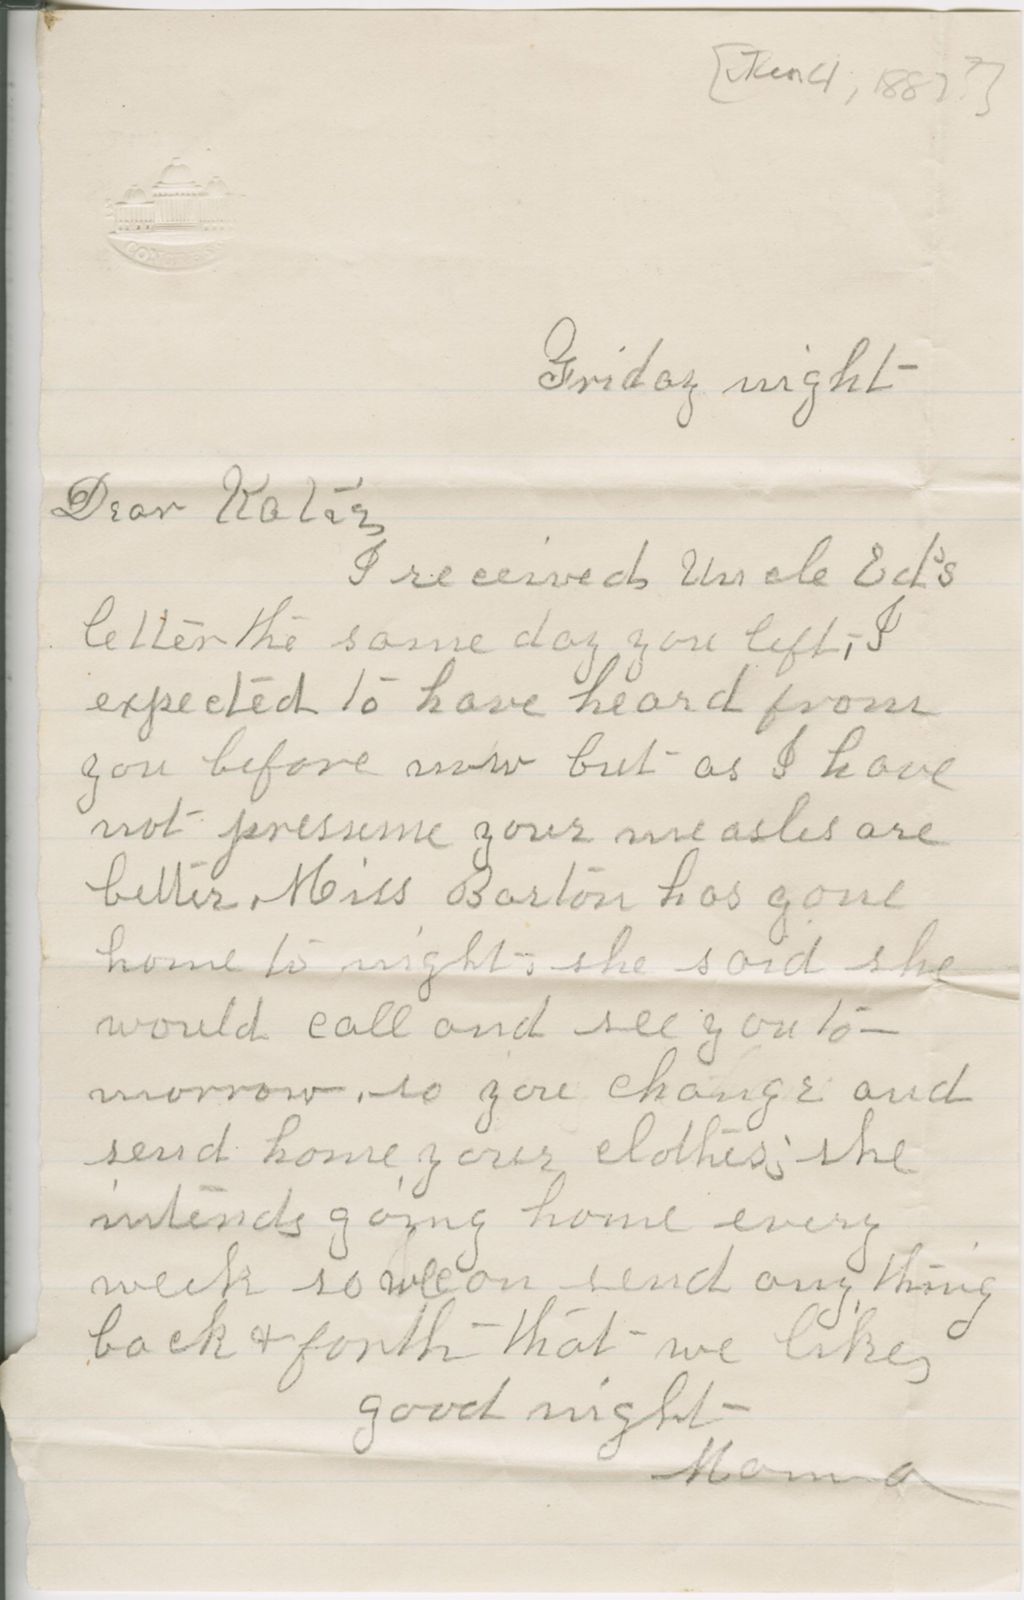 1887?]
CONGRESS
Friday night
Dear Katie,
I received Uncle Ed's
letter the same day you left, I
expected to have heard from
you before now but as I have
not pressume your measles are
better. Miss Barton has gone
home to night, she said she
would call and see you to-
morrow. so you change and
send home your clothes; she
intends going home every
week so we can send any thing
back & forth that we like,
good night
Mamma